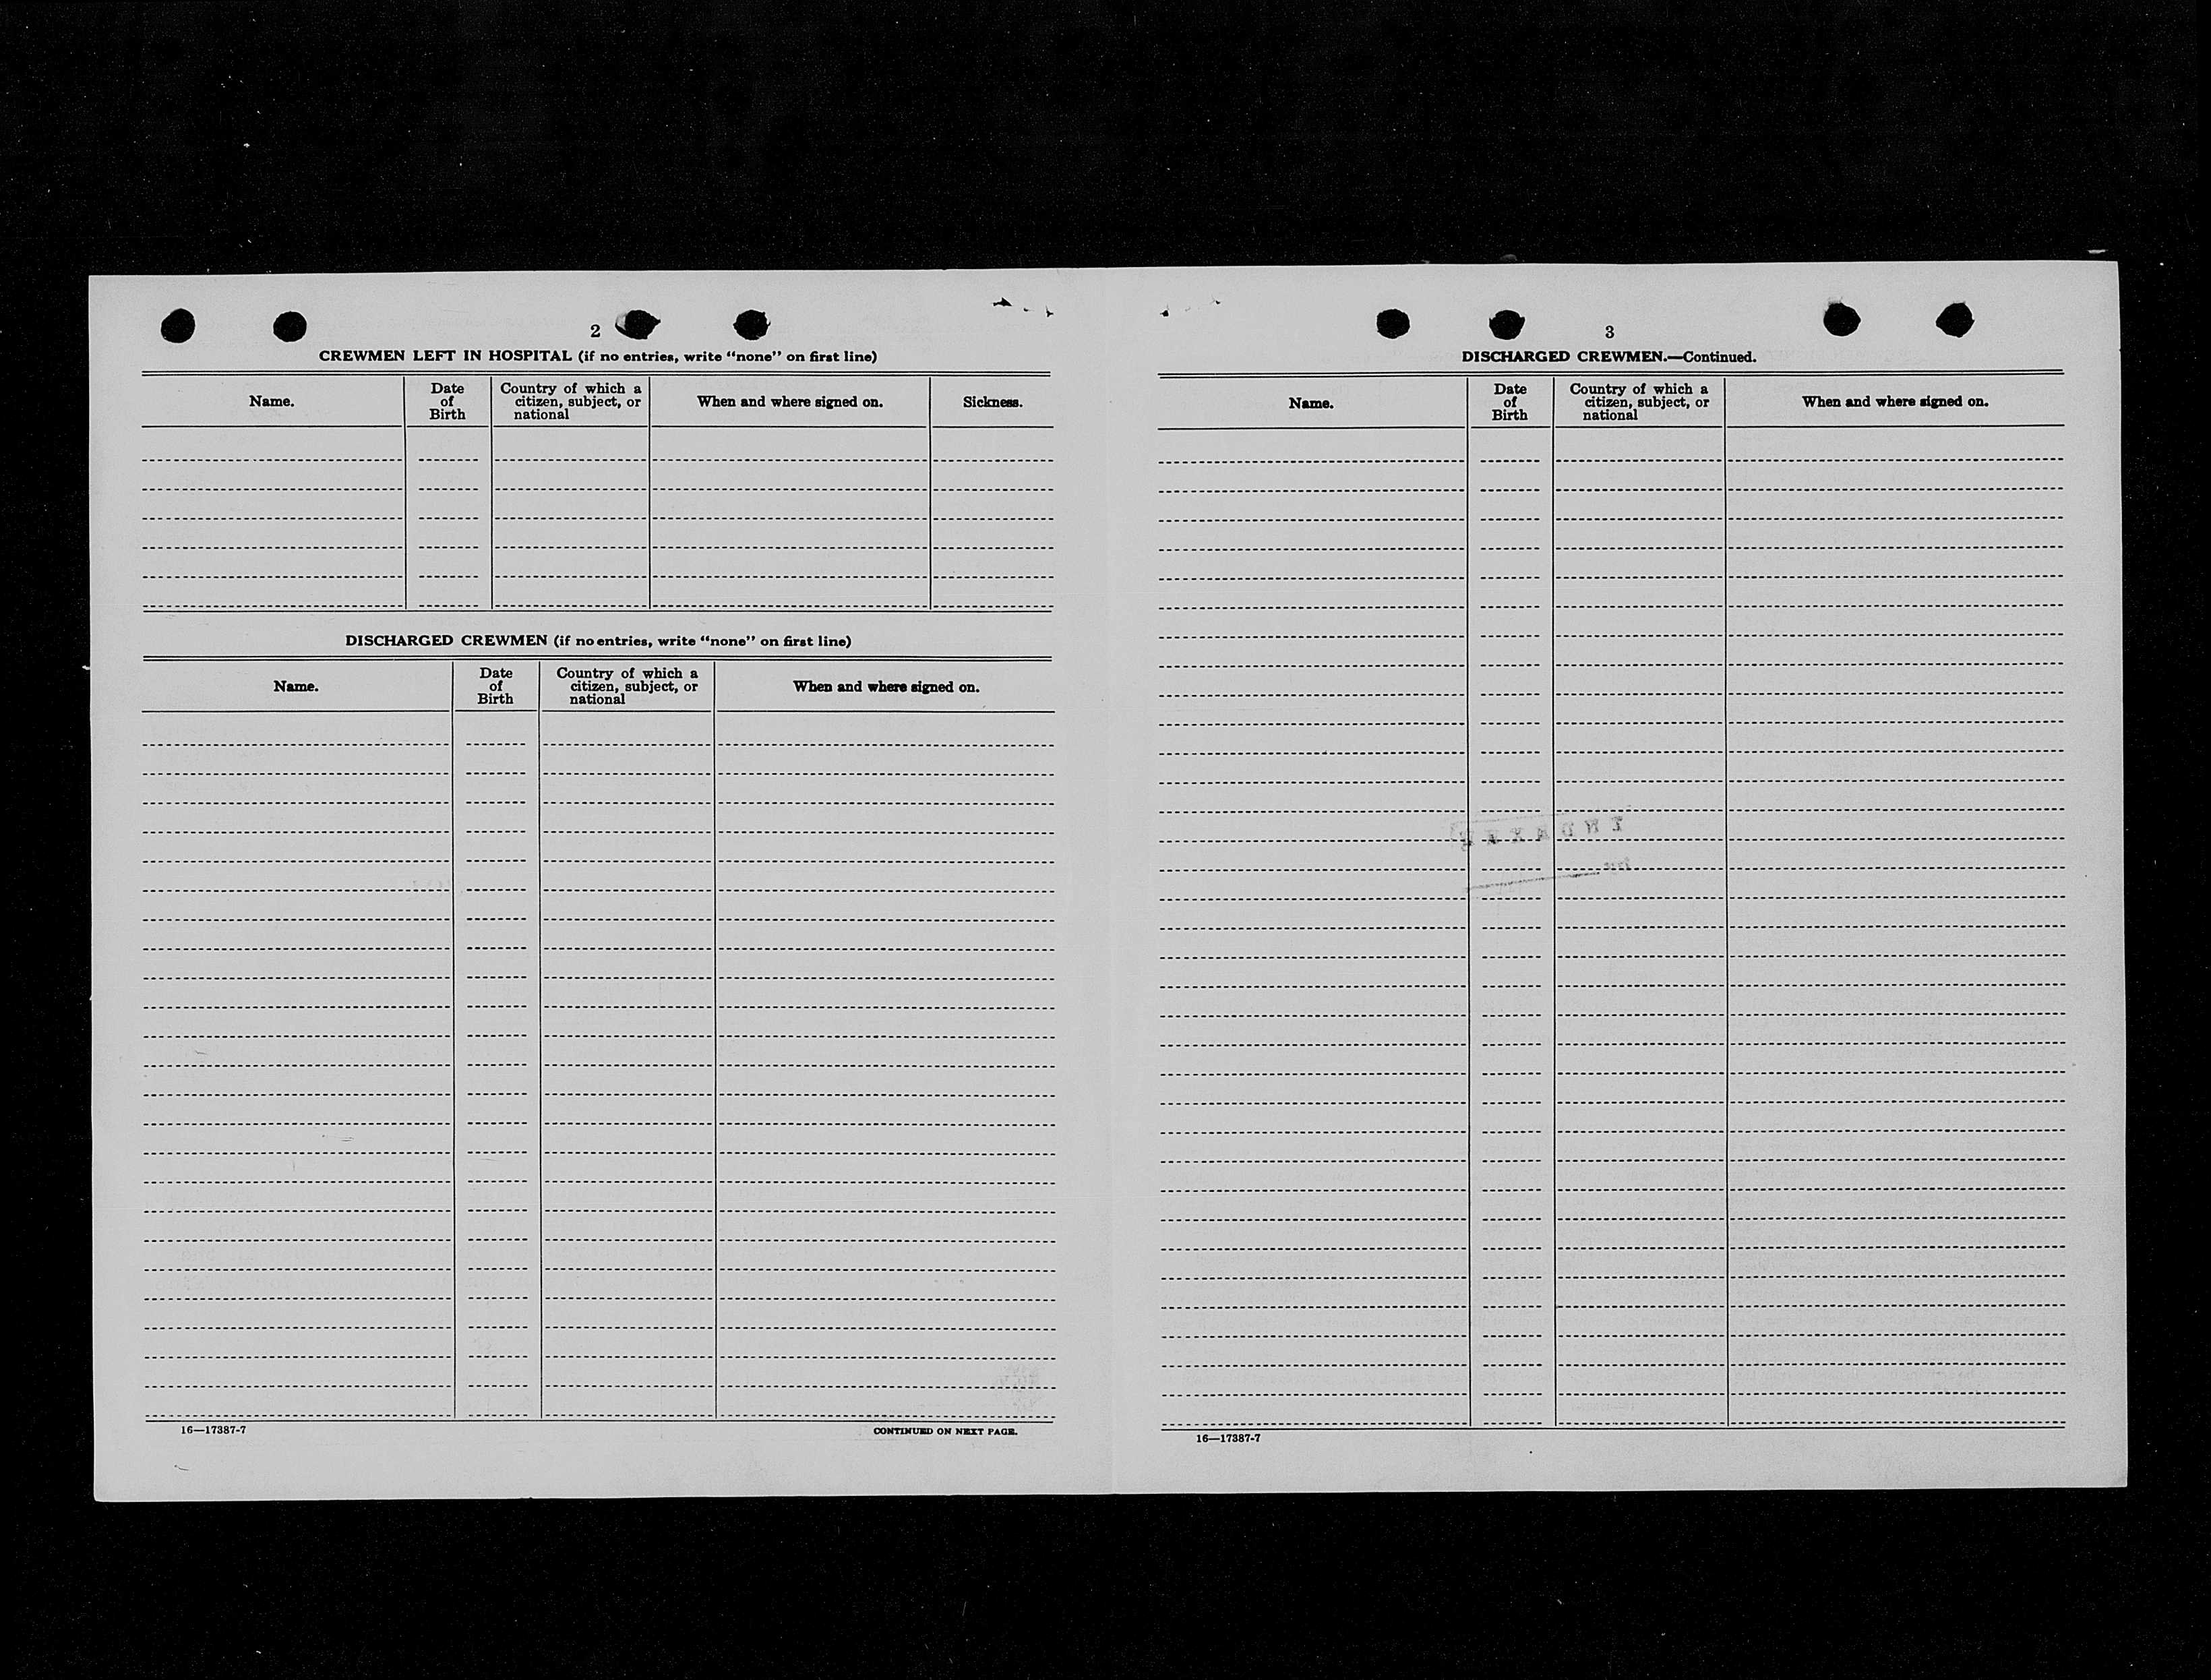 2
CREWMEN LEFT IN HOSPITAL (if no entries, write "none" on first line)
Name.
Date
of
Birth
Country of which a
citizen, subject, or
national
When and where signed on.
Sickness.
DISCHARGED CREWMEN (if no entries, write "none" on first line)
Name.
Date
of
Birth
Country of which a
citizen, subject, or
national
When and where signed on.
16—17387-7
CONTINUED ON NEXT PAGE.
3
DISCHARGED CREWMEN.—Continued.
Name.
Date
of
Birth
Country of which a
citizen, subject, or
national
When and where signed on.
16—17387-7